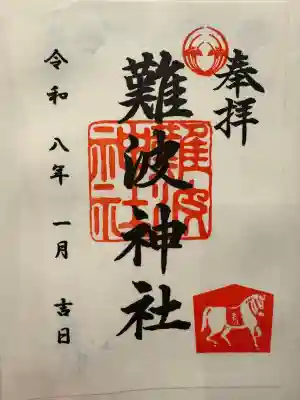 奉拝
難波神社
難波神社
令和八年一月吉日